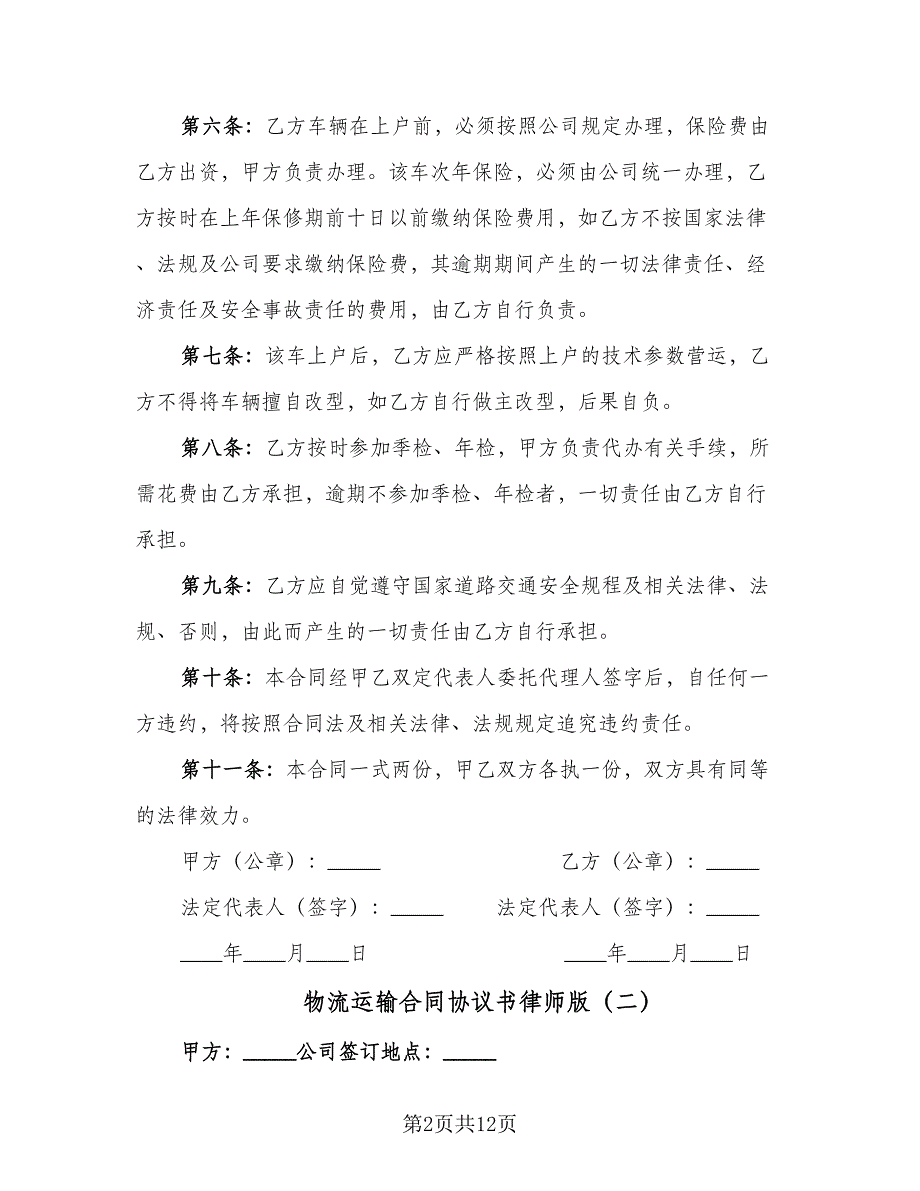 第六条：乙方车辆在上户前，必须按照公司规定办理，保险费由
乙方出资，甲方负责办理。该车次年保险，必须由公司统一办理，乙
方按时在上年保修期前十日以前缴纳保险费用，如乙方不按国家法律
、法规及公司要求缴纳保险费，其逾期期间产生的一切法律责任、经
济责任及安全事故责任的费用，由乙方自行负责。
第七条：该车上户后，乙方应严格按照上户的技术参数营运，乙
方不得将车辆擅自改型，如乙方自行做主改型，后果自负。
第八条：乙方按时参加季检、年检，甲方负责代办有关手续，所
需花费由乙方承担，逾期不参加季检、年检者，一切责任由乙方自行
承担。
第九条：乙方应自觉遵守国家道路交通安全规程及相关法律、法
规、否则，由此而产生的一切责任由乙方自行承担。
第十条：本合同经甲乙双定代表人委托代理人签字后，自任何一
方违约，将按照合同法及相关法律、法规规定追究违约责任。
第十一条：本合同一式两份，甲乙双方各执一份，双方具有同等
的法律效力。
甲方（公章）：_____ 乙方（公章）：_____
法定代表人（签字）：_____ 法定代表人（签字）：_____
____年____月____日 ____年____月____日
物流运输合同协议书律师版（二）
甲方：_____公司签订地点：_____
第2页共12页